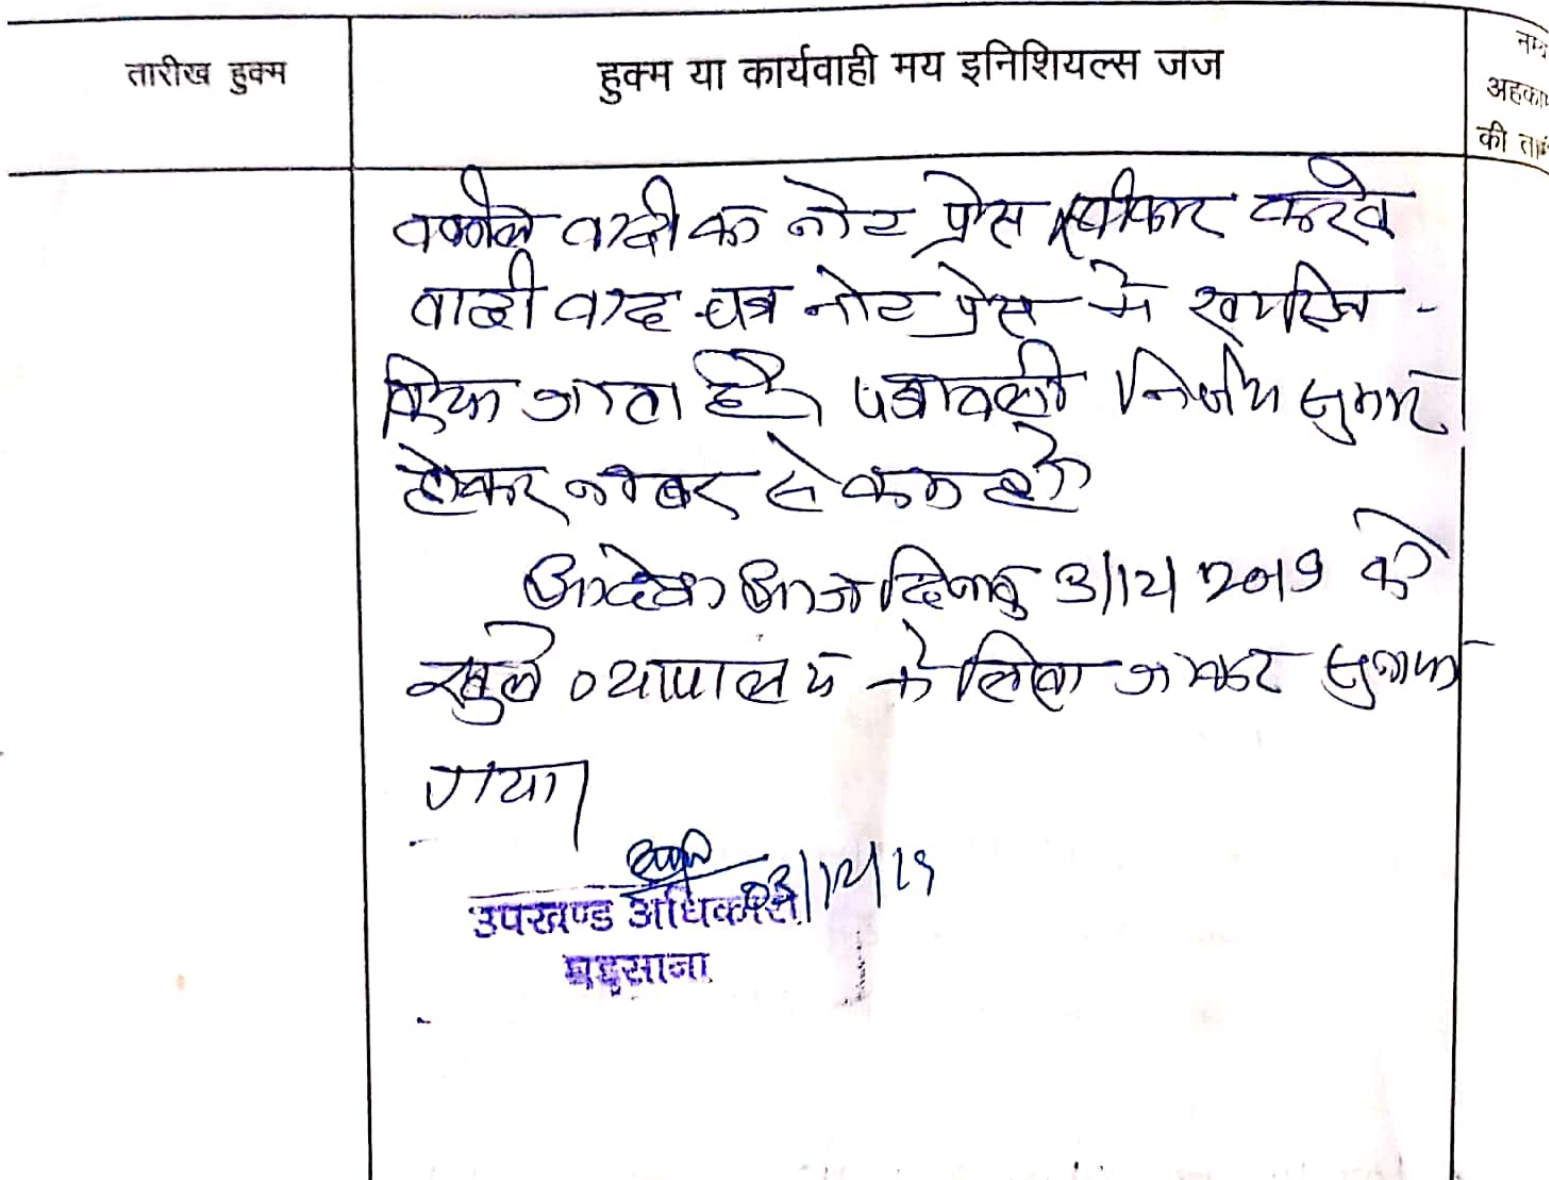 तारीख हुक्म
हुक्म या कार्यवाही मय इनिशियल्स जज
अहकाम
की
वकील वादी का नोट प्रेस स्वीकार करते
वादी वाद पत्र नोट प्रेस मे खारिज
किया जाता है। पत्रावली निर्णय सुमार
होकर नम्बर से कम हो
आदेश आज दिनांक 3/12/2019 को
खुले न्यायालय मे लिखा जाकर सुनाया
गया।
03/12/19
उपखण्ड अधिकारी
घड़साना